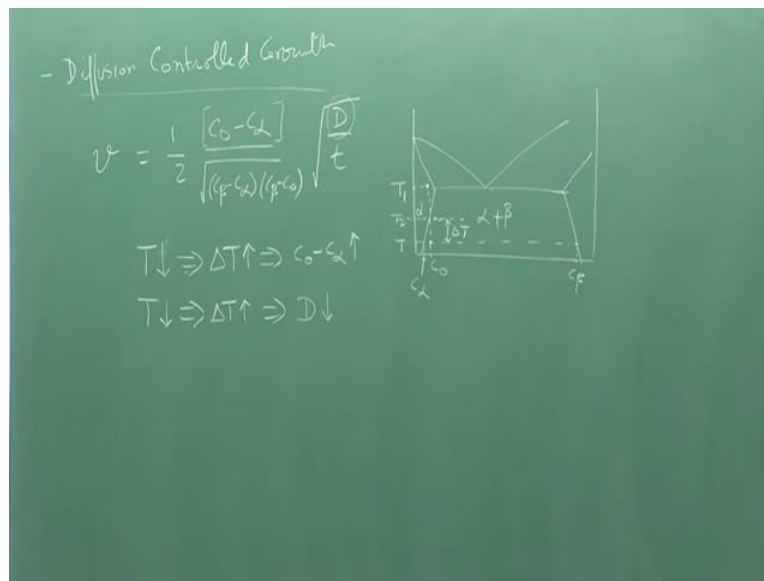 - Diffusion Controlled Growth
v = 1/2 [C₀-C_α]/√((C_β-C_α)(C_β-C₀)) √(D/t)
T↓ ⇒ ΔT↑ ⇒ C₀-C_α↑
T↓ ⇒ ΔT↑ ⇒ D↓
T₁
α
T₂
α+β
ΔT
T
C₀
C_α
C_β